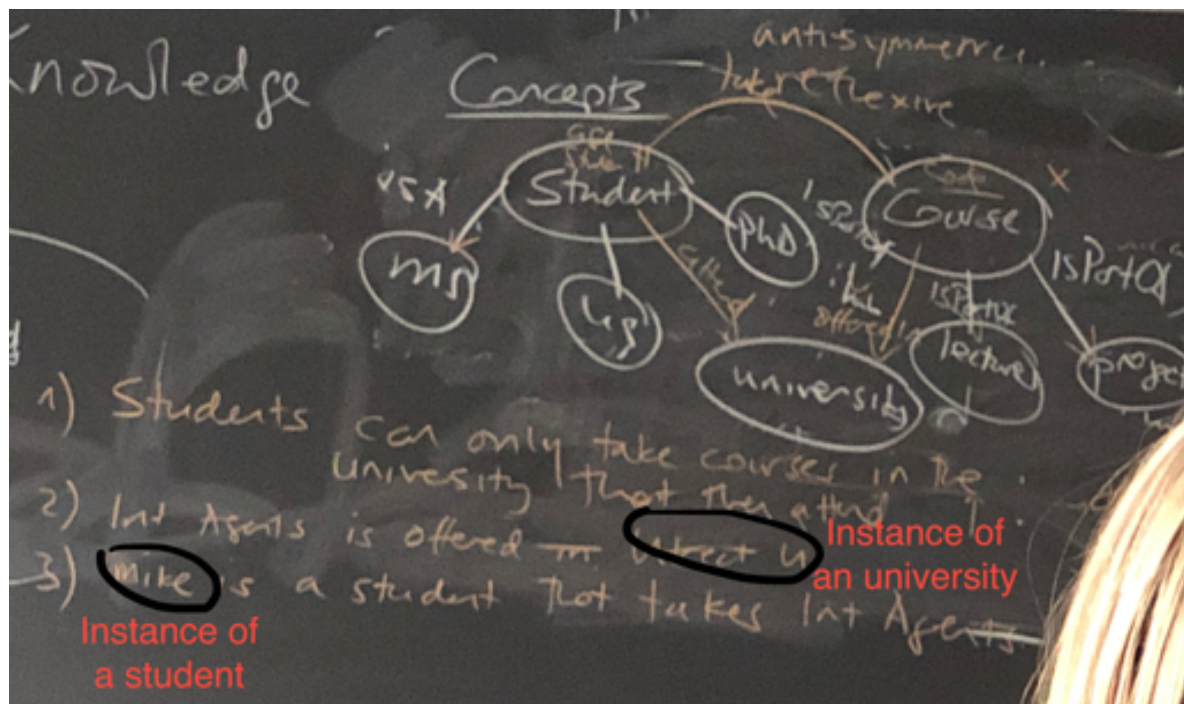 Knowledge
Concepts
antisymmetric
reflexive
age
Student
Code
Course
X
ISA
MS
UG
PhD
attend
university
offered in
IsPartOf
lecture
IsPartOf
project
1) Students can only take courses in the
university that they attend
2) Int Agents is offered in Utrect U
3) Mike is a student that takes Int Agents
Instance of
an university
Instance of
a student